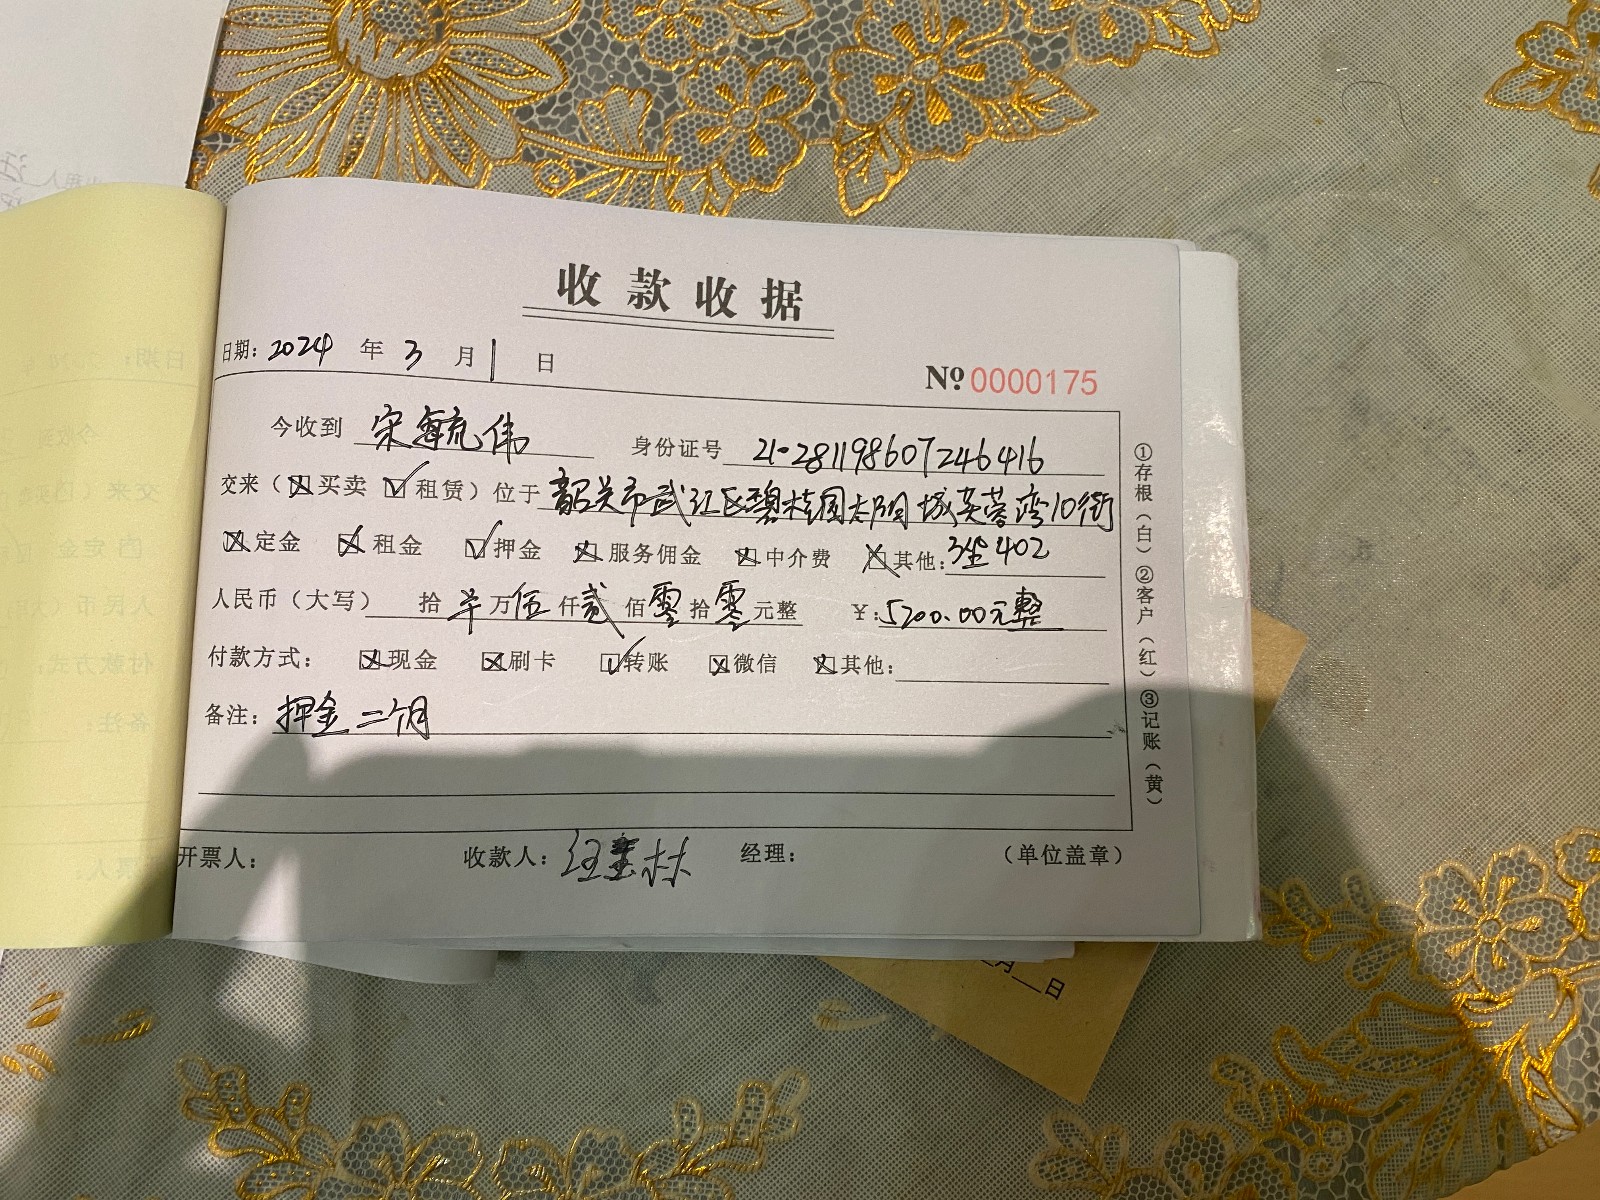 收款收据
日期：2024 年 3 月 1 日
№ 0000175
今收到 宋毓伟 身份证号 21-2811198607246416
交来（☒买卖 ☑租赁）位于 韶关市武江区碧桂园太阳城芙蓉湾10街
☒定金 ☒租金 ☑押金 ☒服务佣金 ☒中介费 ☒其他：3坐402
人民币（大写） 拾 万伍仟贰佰零拾零元整 ￥：5200.00元整
付款方式： ☒现金 ☒刷卡 ☑转账 ☒微信 ☒其他：
备注：押金二个月
开票人： 收款人： 经理： （单位盖章）
①存根（白）②客户（红）③记账（黄）
月__日